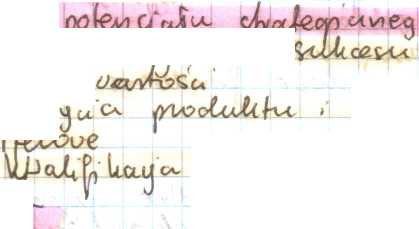 potencjału strategicznego
sukcesu
wartości
gia produktu i
kwalifikacja